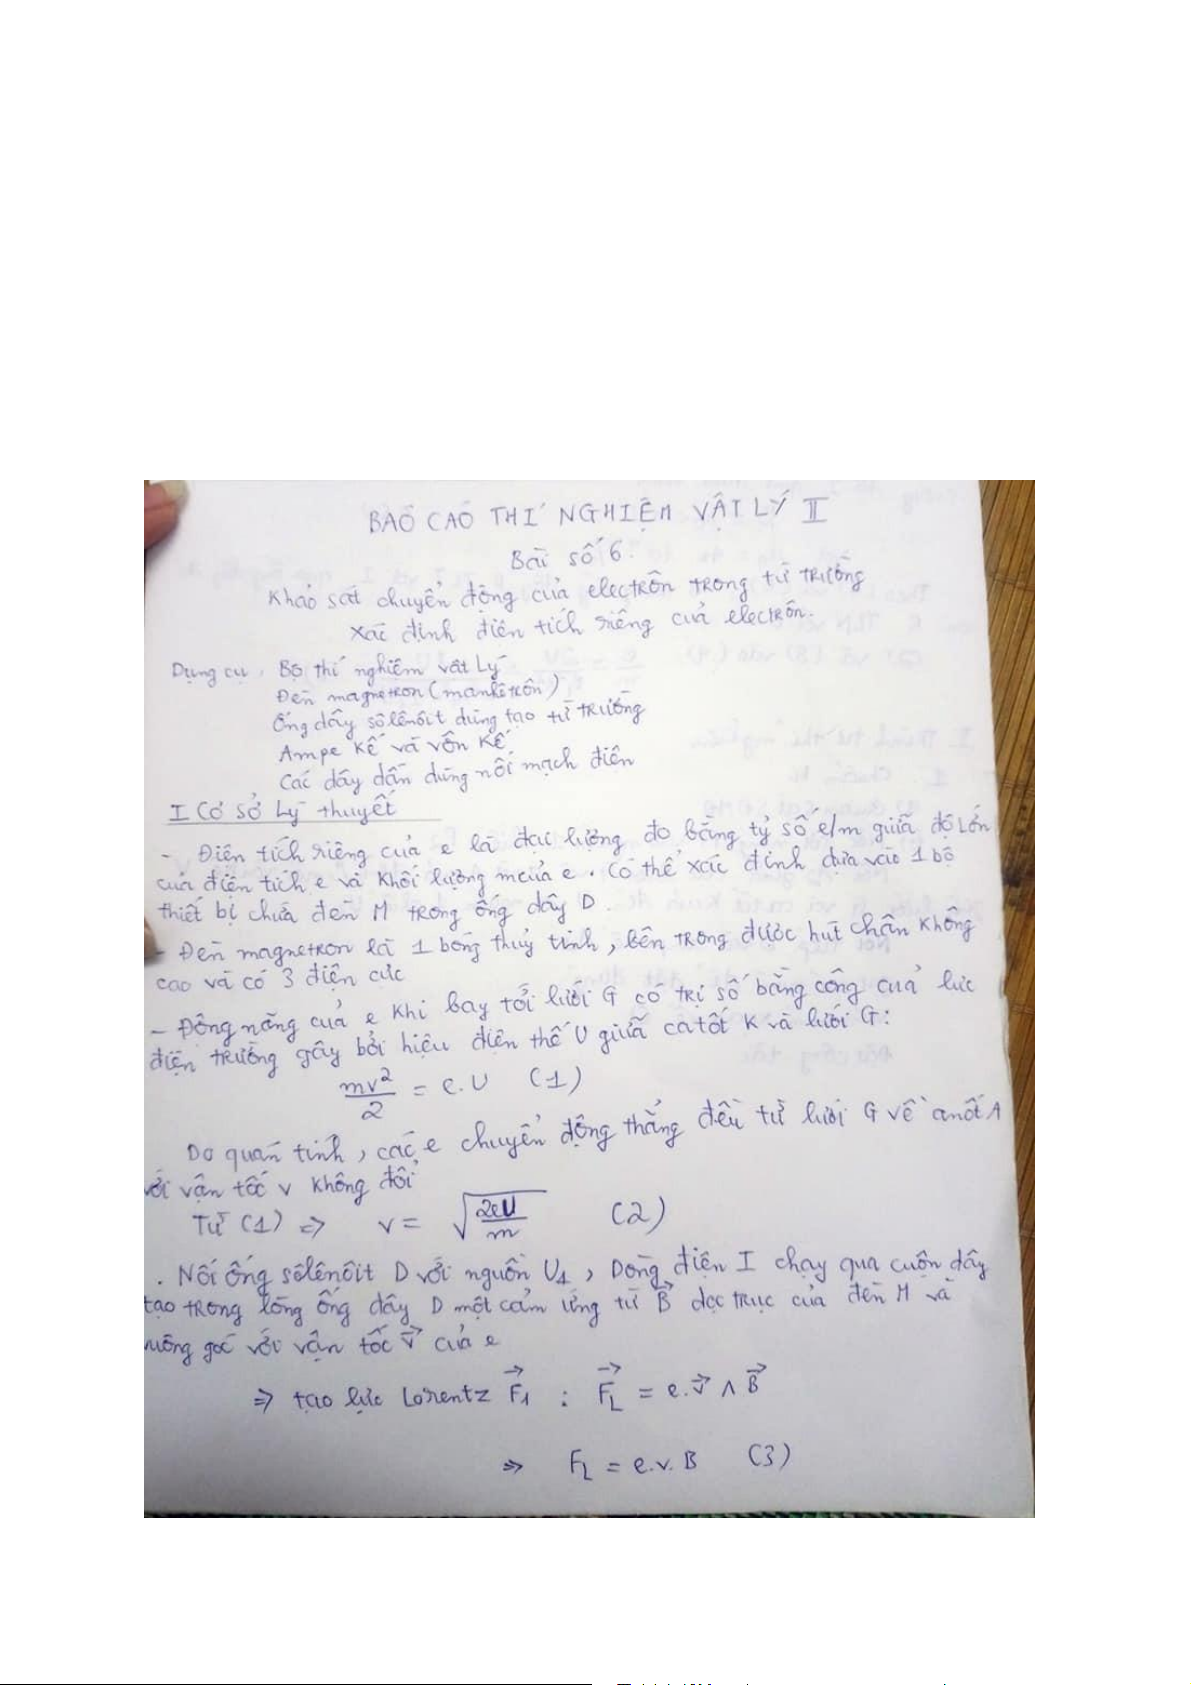 BÁO CÁO THÍ NGHIỆM VẬT LÝ II
Bài số 6:
Khảo sát chuyển động của electrôn trong từ trường
Xác định điện tích riêng của electrôn.
Dụng cụ: Bộ thí nghiệm vật lý
Đèn magnetron (manhêtrôn)
Ống dây sôlênôit dùng tạo từ trường
Ampe kế và vôn kế
Các dây dẫn dùng nối mạch điện
I Cơ sở lý thuyết
- Điện tích riêng của e là đại lượng đo bằng tỷ số e/m giữa độ lớn
của điện tích e và khối lượng m của e. Có thể xác định dựa vào 1 bộ
thiết bị chứa đèn M trong ống dây D.
- Đèn magnetron là 1 bóng thuỷ tinh, bên trong được hút chân không
cao và có 3 điện cực
- Động năng của e khi bay tới lưới G có trị số bằng công của lực
điện trường gây bởi hiệu điện thế U giữa catốt K và lưới G:
mv²/2 = e.U (1)
Do quán tính, các e chuyển động thẳng đều từ lưới G về anốt A
với vận tốc v không đổi
Từ (1) => v = √(2eU/m) (2)
. Nối ống sôlênôit D với nguồn U1, Dòng điện I chạy qua cuộn dây
tạo trong lòng ống dây D một cảm ứng từ B⃗ dọc trục của đèn M và
vuông góc với vận tốc v⃗ của e
=> tạo lực Lorentz F⃗1 : F⃗L = e.v⃗ ∧ B⃗
=> FL = e.v.B (3)